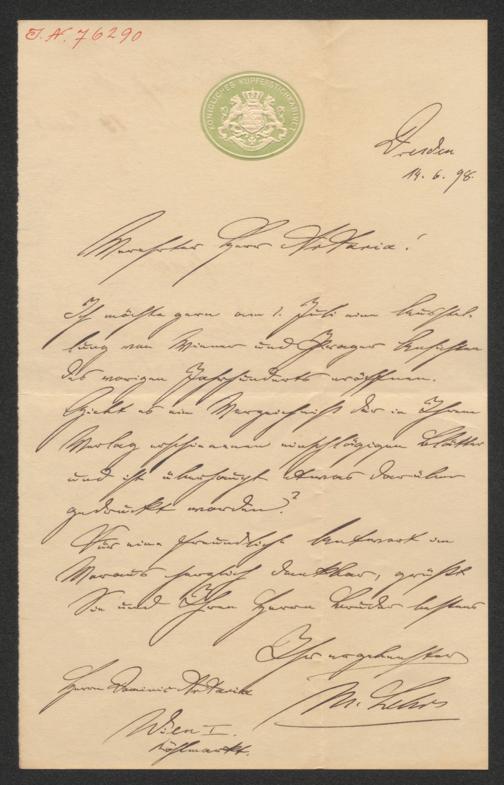 J. N. 76290
KÖNIGLICHES KUPFERSTICHKABINET
Dresden
14. 6. 98.
Verehrter Herr Artaria!
Ich möchte gern am 1. Juli eine Ausstel-
lung von Wiener und Prager Ansichten
des vorigen Jahrhunderts eröffnen.
Giebt es ein Verzeichniß der in Ihrem
Verlag erschienenen einschlägigen Blätter
und ist überhaupt etwas darüber
gedruckt worden?
Für eine freundliche Antwort im
Voraus herzlich dankbar, grüßt
Sie und Ihren Herrn Bruder bestens
Ihr ergebenster
M. Lehrs
Herrn Dominic Artaria
Wien I.
Kohlmarkt.